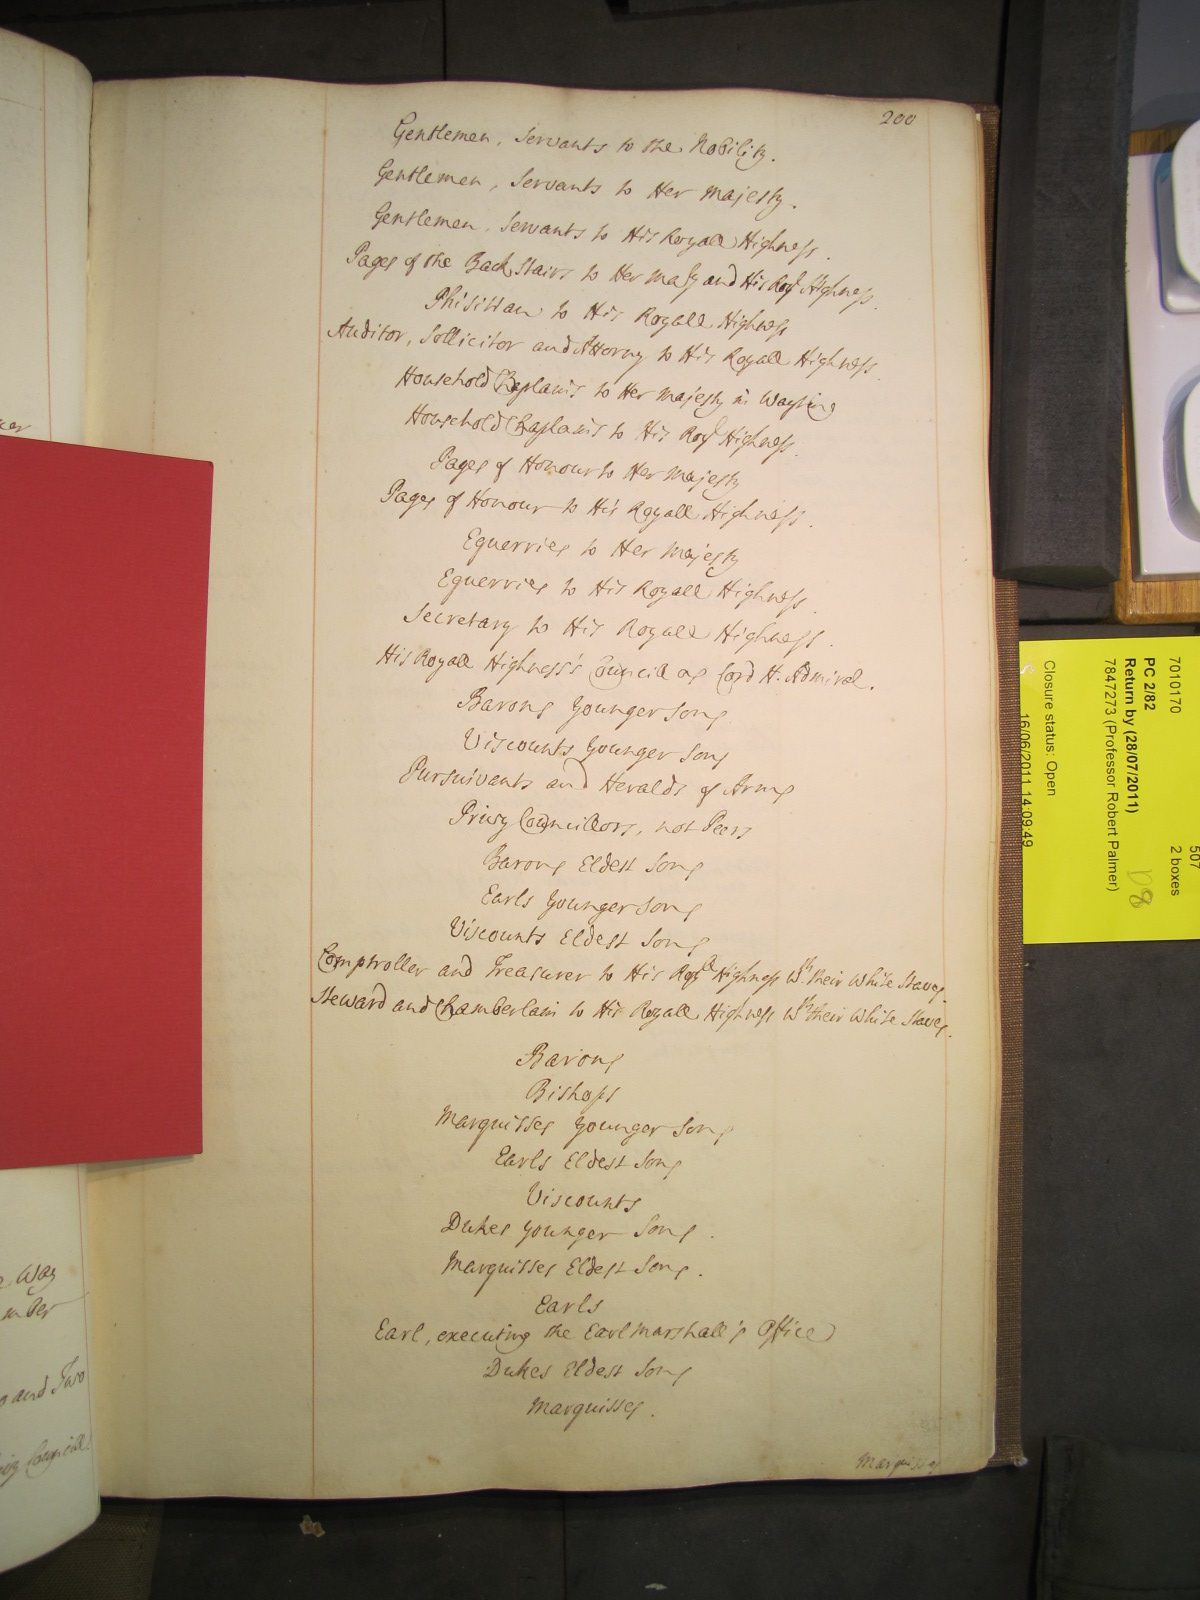 200
Gentlemen, Servants to the Nobility.
Gentlemen, Servants to Her Majesty.
Gentlemen, Servants to His Royall Highness.
Pages of the Back Stairs to Her Maty and His Royl Highness.
Phisitian to His Royall Highness
Auditor, Sollicitor and Attorny to His Royall Highness.
Household Chaplains to Her Majesty in Wayting
Household Chaplains to His Royl Highness.
Pages of Honour to Her Majesty
Pages of Honour to His Royall Highness.
Equerries to Her Majesty
Equerries to His Royall Highness.
Secretary to His Royall Highness.
His Royall Highness's Councill as Lord H. Admiral.
Barons Younger Sons
Viscounts Younger Sons
Pursuivants and Heralds of Arms
Privy Councillors, not Peers
Barons Eldest Sons
Earls Younger Sons
Viscounts Eldest Sons
Comptroller and Treasurer to His Royll Highness Wth their White Staves.
Steward and Chamberlain to His Royall Highness Wth their White Staves.
Barons
Bishops
Marquisses Younger Sons
Earls Eldest Sons
Viscounts
Dukes Younger Sons.
Marquisses Eldest Sons.
Earls
Earl, executing the Earl Marshall's Office
Dukes Eldest Sons
Marquisses.
Marquisses
Way
and Two
Councill
7010170
507
2 boxes
PC 2/82
Return by (28/07/2011)
7847273 (Professor Robert Palmer)
D8
Closure status: Open
16/06/2011 14:09:49